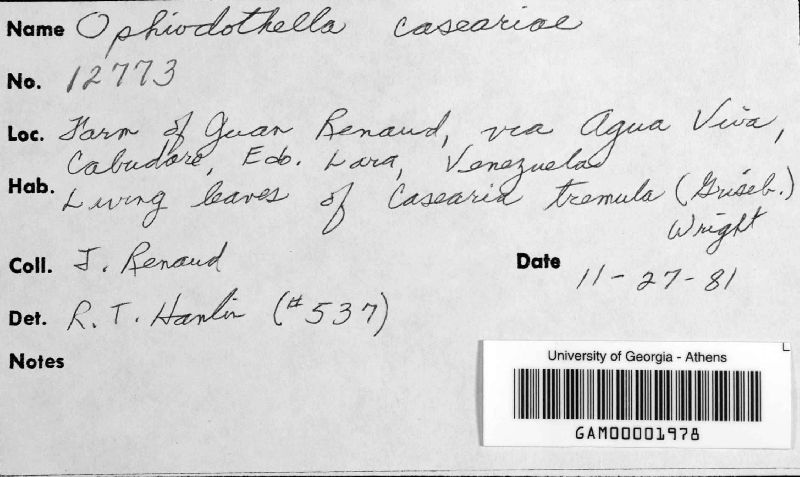 Name Ophiodothella caseariae
No. 12773
Loc. Farm of Juan Renaud, via Agua Viva,
Cabudare, Edo. Lara, Venezuela
Hab. Living leaves of Casearia tremula (Griseb.)
Wright
Coll. J. Renaud
Date 11-27-81
Det. R. T. Hanlin (#537)
Notes
University of Georgia - Athens
GAM00001978